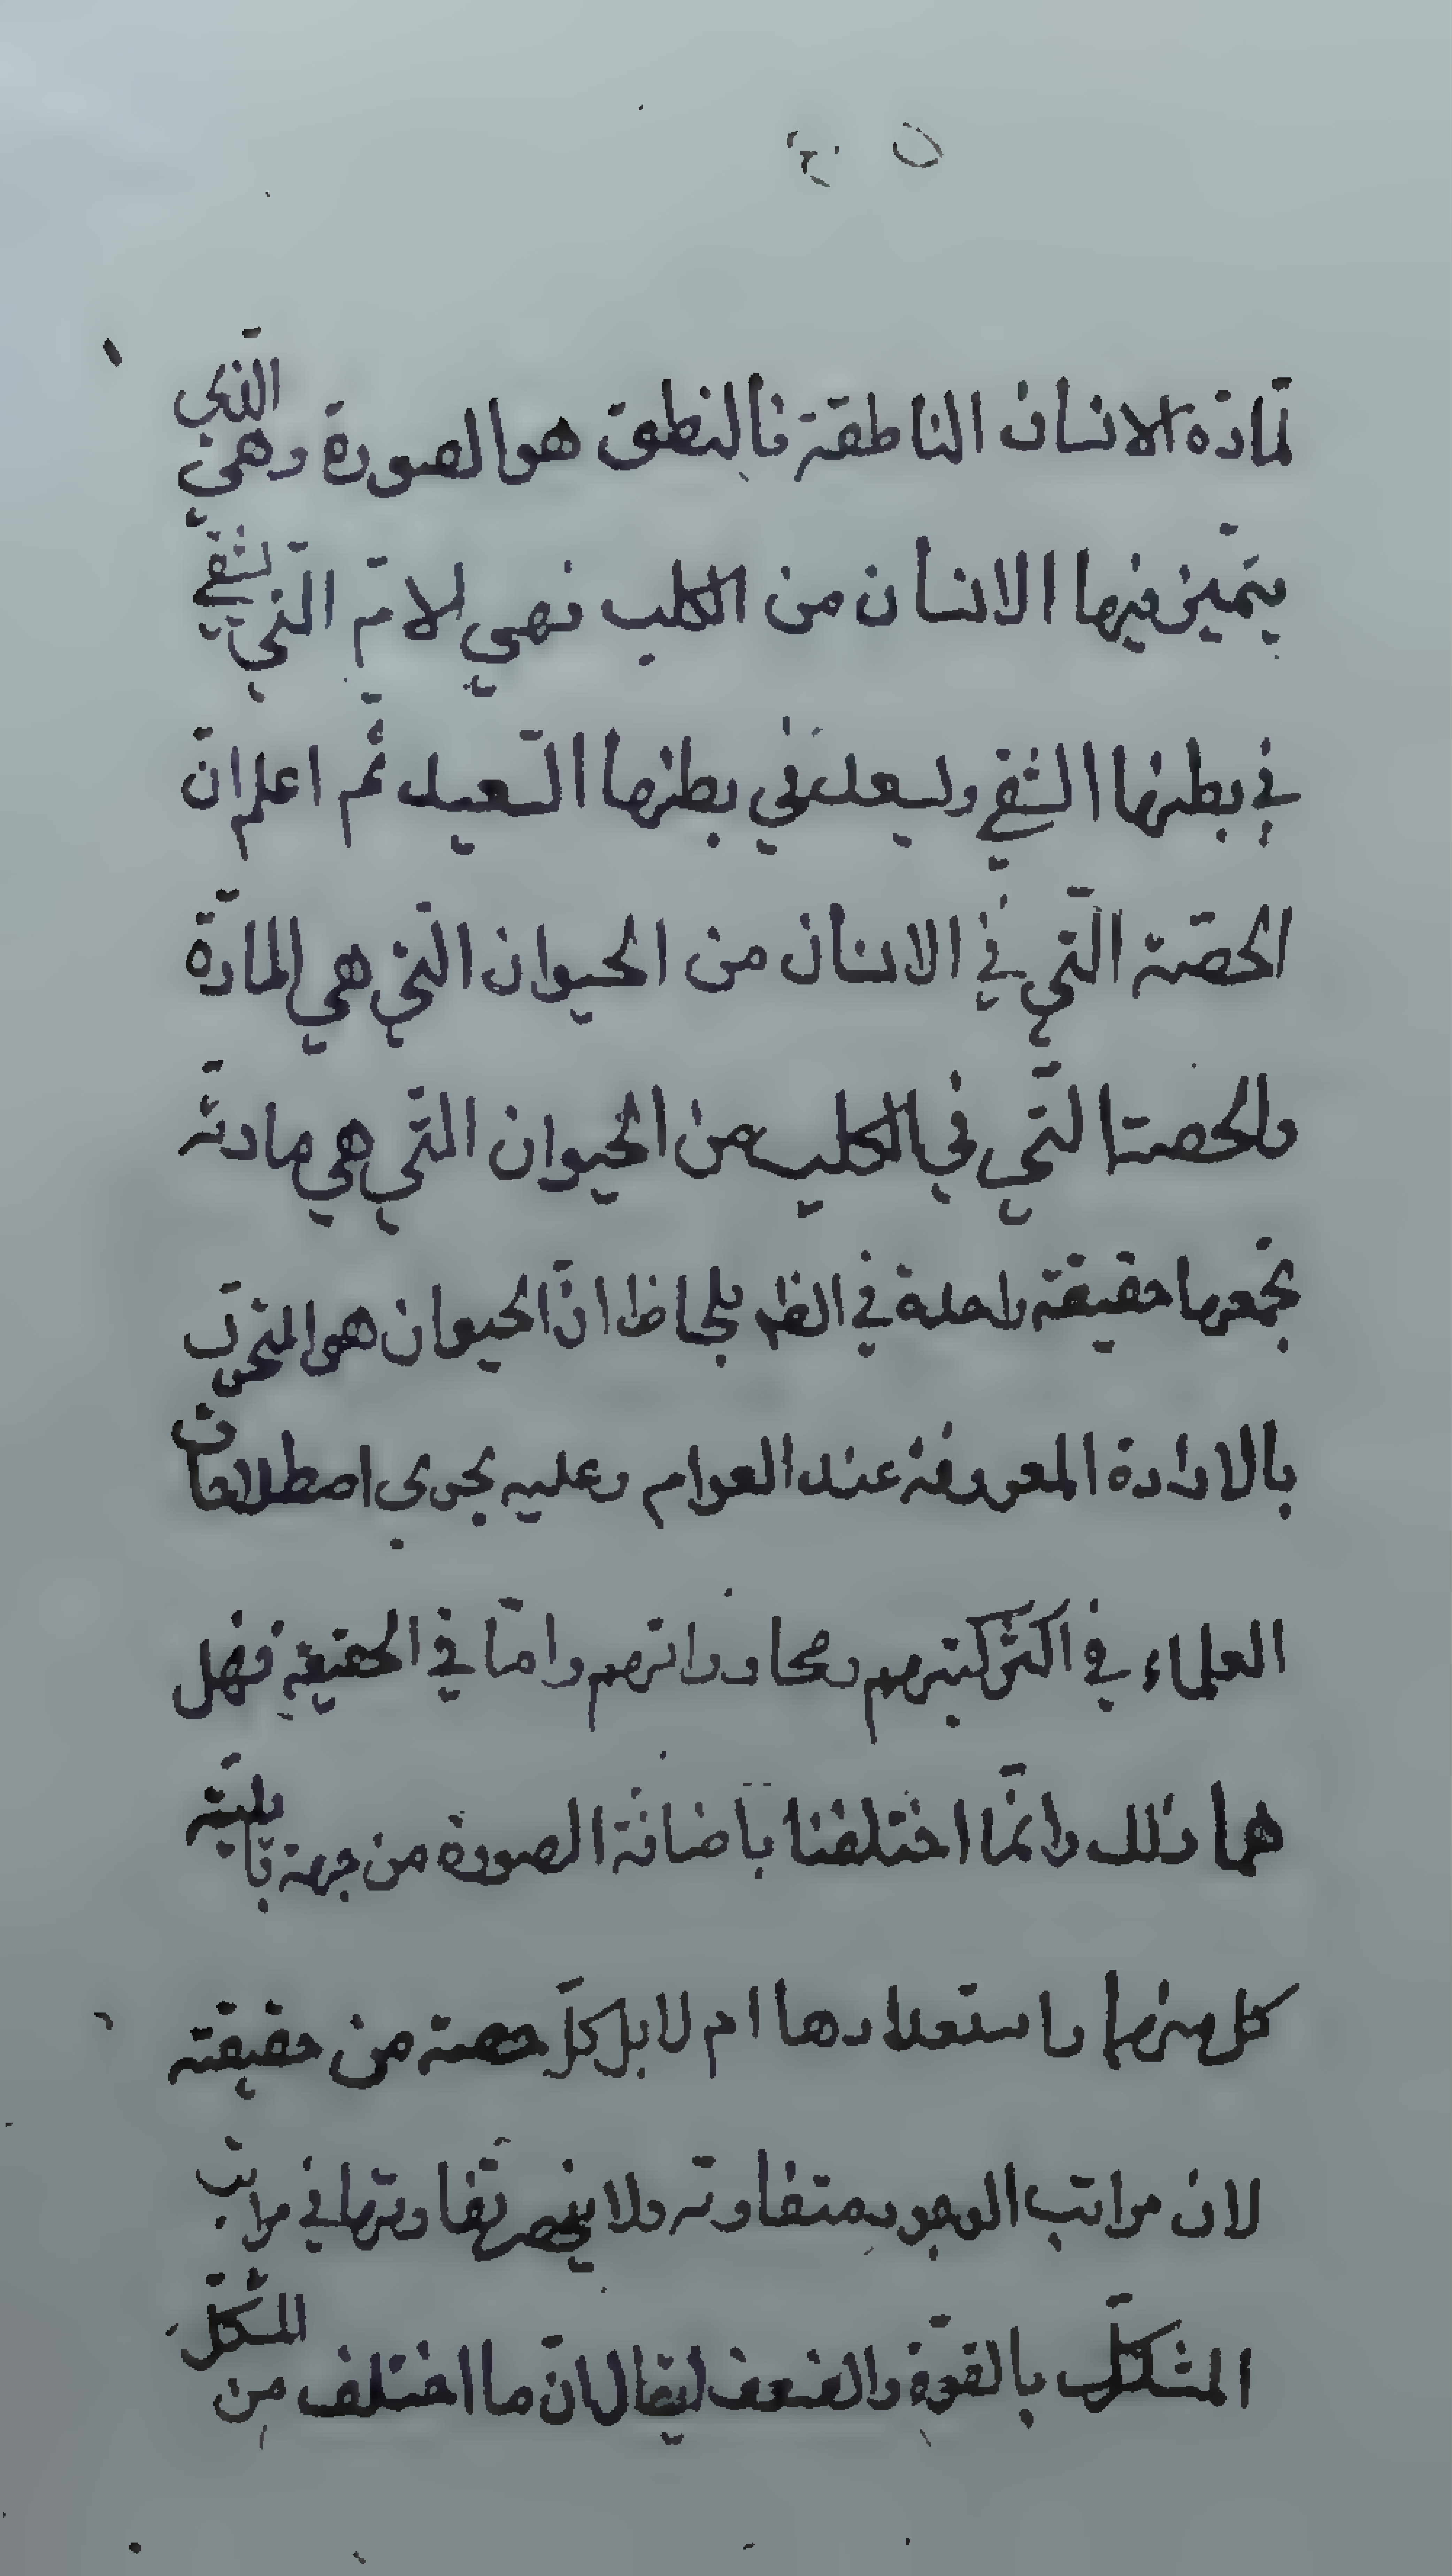 لمادّة الانسان الناطقة فالنطق هو الصورة وهي الّذي
يتميّز فيها الانسان من الكلب فهي لامّ الّتي يشقي
في بطنها الشقي ويسعد في بطنها السّعيد ثمّ اعلم انّ
الحصّة الّتي في الانسان من الحيوان الّتي هي المادّة
والحصة الّتي في الكلب من الحيوان الّتي هي مادتّه
تجمعهما حقيقة واحدة في الظه بلحاظ انّ الحيوان هو المتحرّك
بالارادة المعروفة عند العوام وعليه يجري اصطلاحات
العلماء في اكثر كتبهم ومحاوراتهم وامّا في الحقيقة فهل
هما ذلك وانّما اختلفتا باضافة الصورة من جهة قابليّة
كل منهما واستعدادها ام لا بل كلّ حصة من حقيقته
لان مراتب الوجود متفاوته ولا ينحصر تفاوتها في مراتب
المشكّك بالقوّة والضعف ليقال انّ ما اختلف من المشكّك